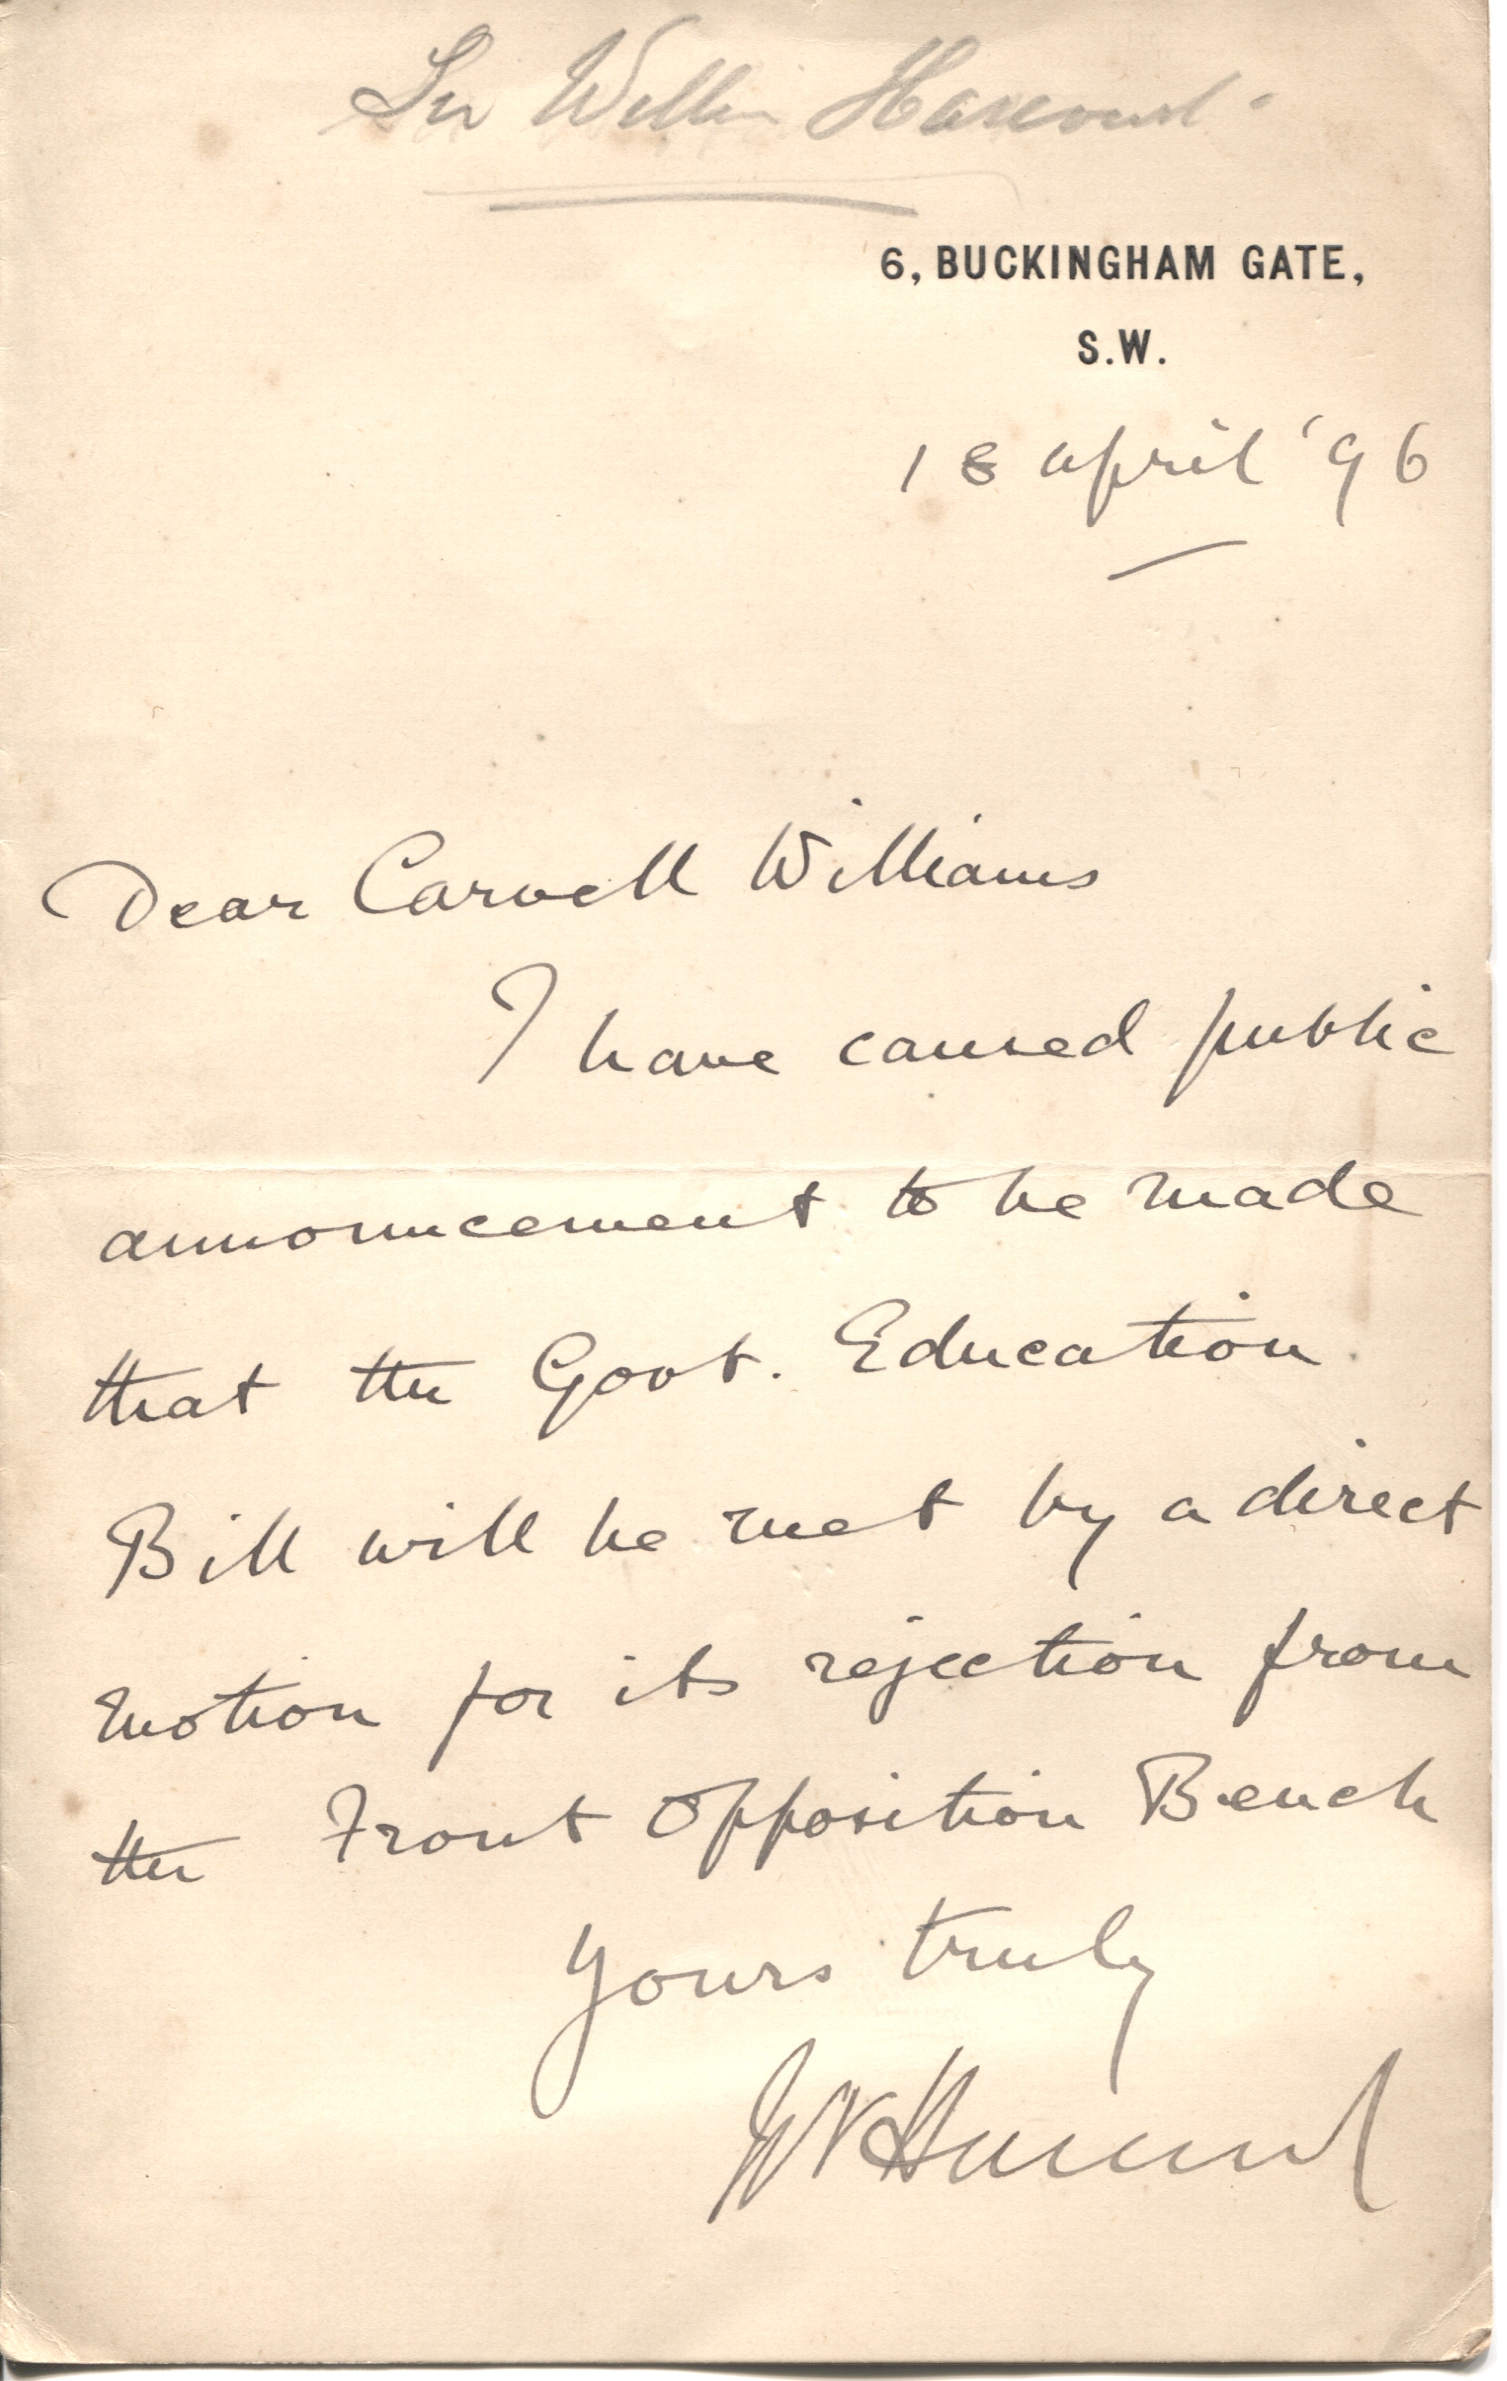 Sir William Harcourt.
6, BUCKINGHAM GATE,
S.W.
18 april '96
Dear Carvell Williams
I have caused public
announcement to be made
that the Govt. Education
Bill will be met by a direct
motion for its rejection from
the Front Opposition Bench
Yours truly
WVHarcourt